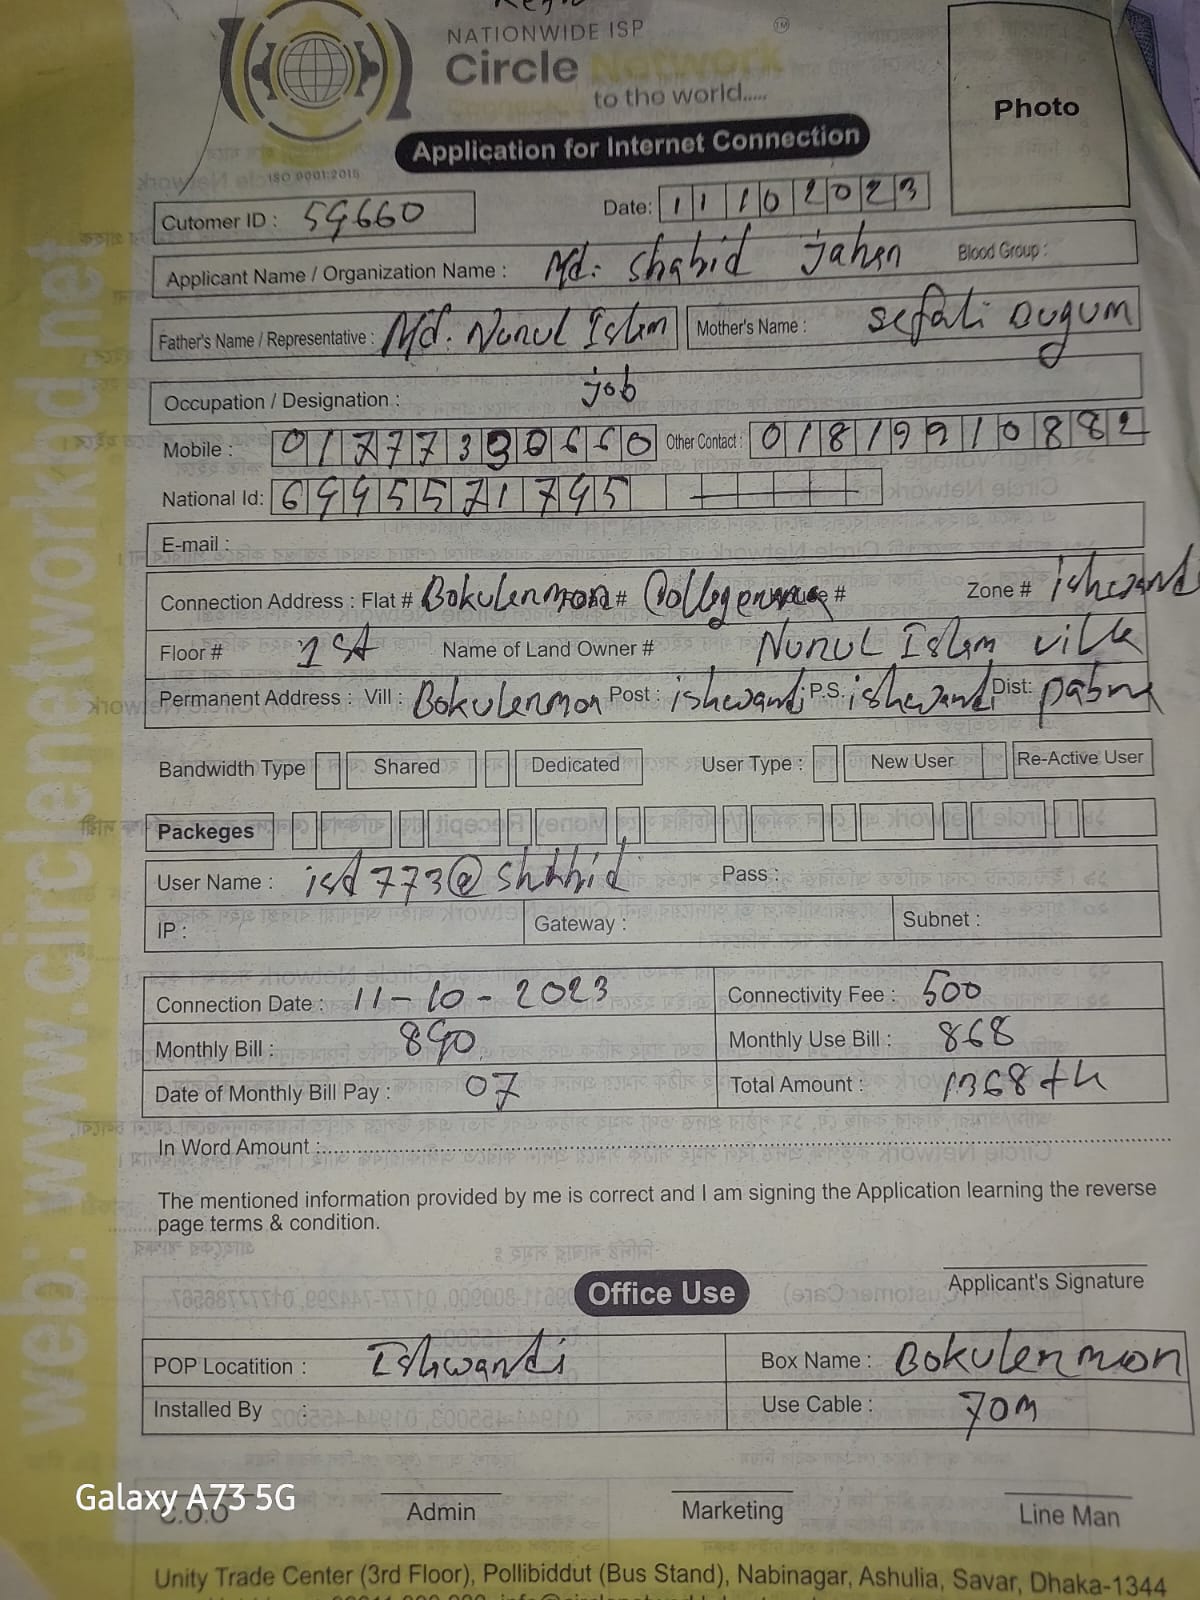 NATIONWIDE ISP TM
Circle Network
to the world.....
Photo
Application for Internet Connection
ISO 9001:2015
Cutomer ID : 59660 Date: 11 10 2023
Applicant Name / Organization Name : Md. Shahid Jahan Blood Group :
Father's Name / Representative : Md. Nurul Islam Mother's Name : Sefali Bugum
Occupation / Designation : job
Mobile : Other Contact : 01819910882
National Id:
E-mail :
Connection Address : Flat # Bokulenmon Zone #
Floor # 1st Name of Land Owner # Nurul Islam villa
Permanent Address : Vill : Bokulenmon Post : ishwardi P.S. ishwardi Dist: pabna
Bandwidth Type Shared Dedicated User Type : New User Re-Active User
Packeges
User Name : isd773@shahid Pass :
IP : Gateway : Subnet :
Connection Date : 11-10-2023 Connectivity Fee : 500
Monthly Bill : 890 Monthly Use Bill : 868
Date of Monthly Bill Pay : 07 Total Amount : 1368 tk
In Word Amount :
The mentioned information provided by me is correct and I am signing the Application learning the reverse
page terms & condition.
Applicant's Signature
Office Use
POP Locatition : Ishwardi Box Name : Bokulenmon
Installed By : Use Cable : 70m
C.O.O Admin Marketing Line Man
Unity Trade Center (3rd Floor), Pollibiddut (Bus Stand), Nabinagar, Ashulia, Savar, Dhaka-1344
web: www.circlenetworkbd.net
Galaxy A73 5G